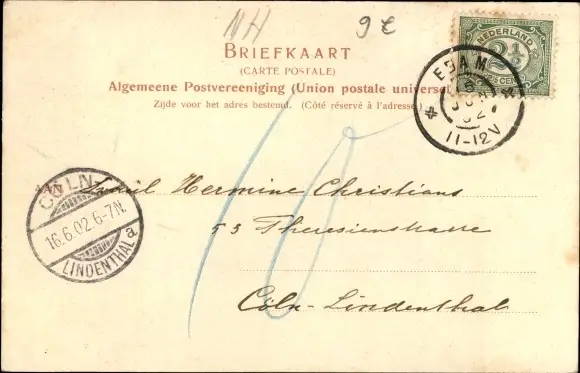 NH 9€
BRIEFKAART
(CARTE POSTALE)
Algemeene Postvereeniging (Union postale universel
Zijde voor het adres bestemd. (Côté réservé à l'adresse)
NEDERLAND
2½
CENT
EDAM
JUN
02
11-12V
CÖLN-
16.6.02.6-7N.
LINDENTHAL a
10
Hermine Christians
53 Theresienstrasse
Cöln-Lindenthal